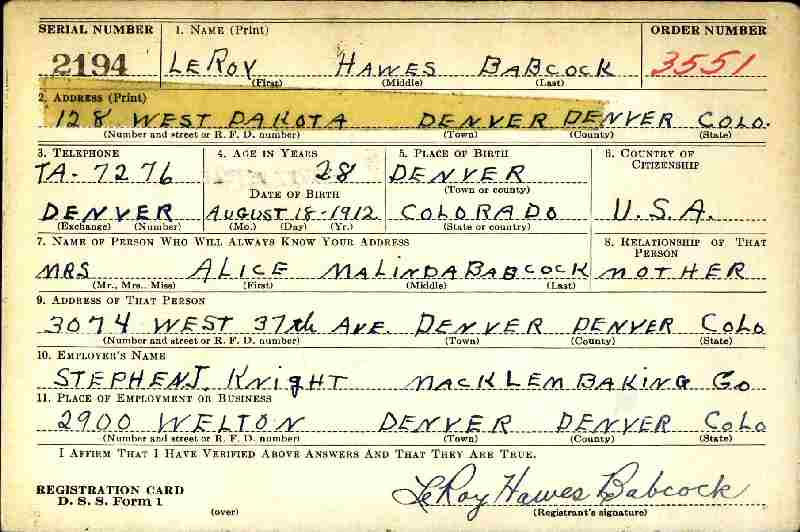 SERIAL NUMBER 1. NAME (Print) ORDER NUMBER
2194 LEROY HAWES BABCOCK 3551
(First) (Middle) (Last)
2. ADDRESS (Print)
128 WEST DAKOTA DENVER DENVER COLO.
(Number and street or R. F. D. number) (Town) (County) (State)
3. TELEPHONE 4. AGE IN YEARS 5. PLACE OF BIRTH 6. COUNTRY OF CITIZENSHIP
TA-7276 28 DENVER
DATE OF BIRTH (Town or county)
DENVER AUGUST 18-1912 COLORADO U.S.A.
(Exchange) (Number) (Mo.) (Day) (Yr.) (State or country)
7. NAME OF PERSON WHO WILL ALWAYS KNOW YOUR ADDRESS 8. RELATIONSHIP OF THAT PERSON
MRS ALICE MALINDA BABCOCK MOTHER
(Mr., Mrs., Miss) (First) (Middle) (Last)
9. ADDRESS OF THAT PERSON
3074 WEST 37th AVE. DENVER DENVER COLO
(Number and street or R. F. D. number) (Town) (County) (State)
10. EMPLOYER'S NAME
STEPHEN J. KNIGHT MACKLEM BAKING CO
11. PLACE OF EMPLOYMENT OR BUSINESS
2900 WELTON DENVER DENVER COLO
(Number and street or R. F. D. number) (Town) (County) (State)
I AFFIRM THAT I HAVE VERIFIED ABOVE ANSWERS AND THAT THEY ARE TRUE.
REGISTRATION CARD LeRoy Hawes Babcock
D. S. S. Form 1 (over) (Registrant's signature)